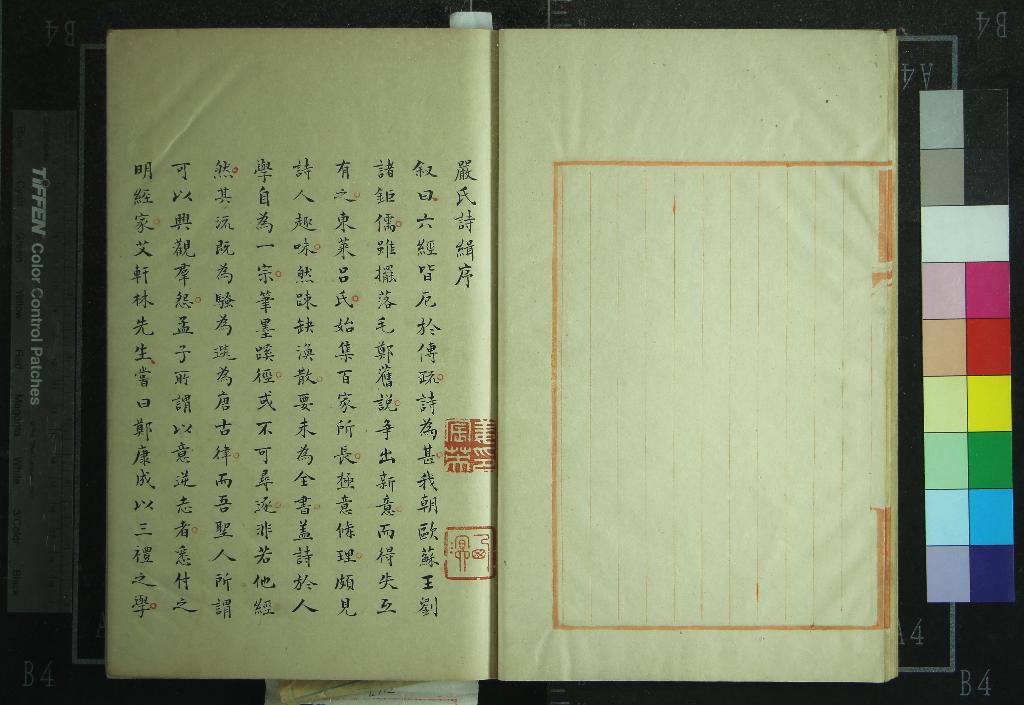 嚴氏詩緝序
叙曰六經皆厄於傳疏詩為甚我朝歐蘇王劉
諸鉅儒雖擺落毛鄭舊說爭出新意而得失互
有之東萊呂氏始集百家所長極意條理頗見
詩人趣味然疎缺渙散要未為全書蓋詩於人
學自為一宗筆墨蹊徑或不可尋逐非若他經
然其流既為騷為選為唐古律而吾聖人所謂
可以興觀羣怨孟子所謂以意逆志者悉付之
明經家艾軒林先生嘗曰鄭康成以三禮之學
TIFFEN Color Control Patches
B4
B4
B4
B4
A4
A4